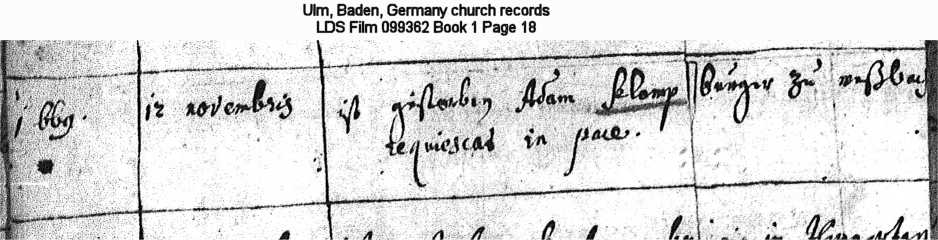 Ulm, Baden, Germany church records
LDS Film 099362 Book 1 Page 18
1669. 12 novembris ist gestorben Adam Klomp burger zu
requiescat in pace.